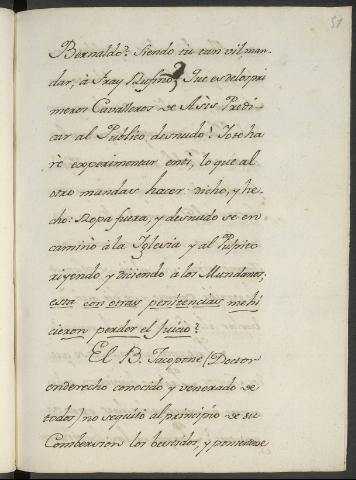 51
Bernaldo? Siendo tu tan vil, man-
dar, à Fray Rufino? Que es delos pri
meros Cavalleros de Asis Predi-
car al Publico desnudo! Yo te ha
rè experimentar enti, lo que al
otro mandas hacer. Dicho, y he-
cho: Ropa fuera, y desnudo se en
caminò à la Iglesia y al Pulpito
riyendo y diciendo à los Mundanos,
esta con otras penitencias me hi
cieron perder el Juicio?
El B. Jacopone (Doctor
enderecho conocido y venerado de
todos) no seguito al principio de su
Combersion los bestidos, y poniendose